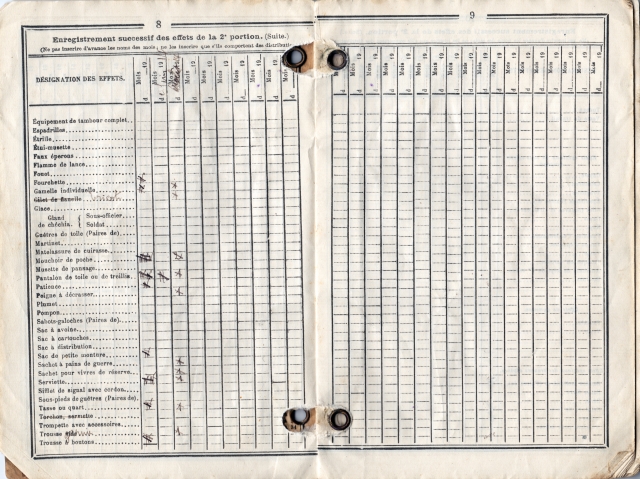 8
Enregistrement successif des effets de la 2e portion. (Suite.)
(Ne pas inscrire d'avance les noms des mois; ne les inscrire que s'ils comportent des distributio
DÉSIGNATION DES EFFETS.
Mois 19 Mois 19 Mois 19 Mois 19 Mois 19 Mois 19 Mois 19 Mois 19 Mois 19
d d d d d d d d d
Équipement de tambour complet..
Espadrilles
Étrille
Étui-musette
Faux éperons
Flamme de lance
Fouet
Fourchette
Gamelle individuelle
Gilet de flanelle
Glace
Gland de chéchia. { Sous-officier.
Soldat
Guêtres de toile (Paires de)
Martinet
Matelassure de cuirasse
Mouchoir de poche
Musette de pansage
Pantalon de toile ou de treillis
Patience
Peigne à décrasser
Plumet
Pompon
Sabots-galoches (Paires de)
Sac à avoine
Sac à cartouches
Sac à distribution
Sac de petite monture
Sachet à pains de guerre
Sachet pour vivres de réserve
Serviette
Sifflet de signal avec cordon
Sous-pieds de guêtres (Paires de)
Tasse ou quart
Torchon, serviette
Trompette avec accessoires
Trousse
Trousse à boutons
9
Mois 19 Mois 19 Mois 19 Mois 19 Mois 19 Mois 19 Mois 19 Mois 19 Mois 19